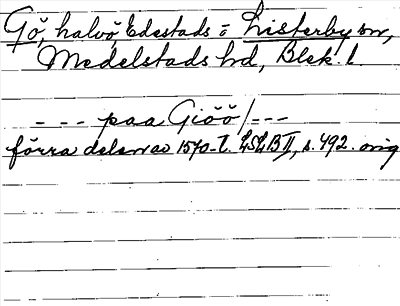 Gö, halvö Edestads o Listerby snr,
Medelstads hd, Blek. l.
--- paa Giöö/---
förra delen av 1570-t. LSLB II, s. 492. orig